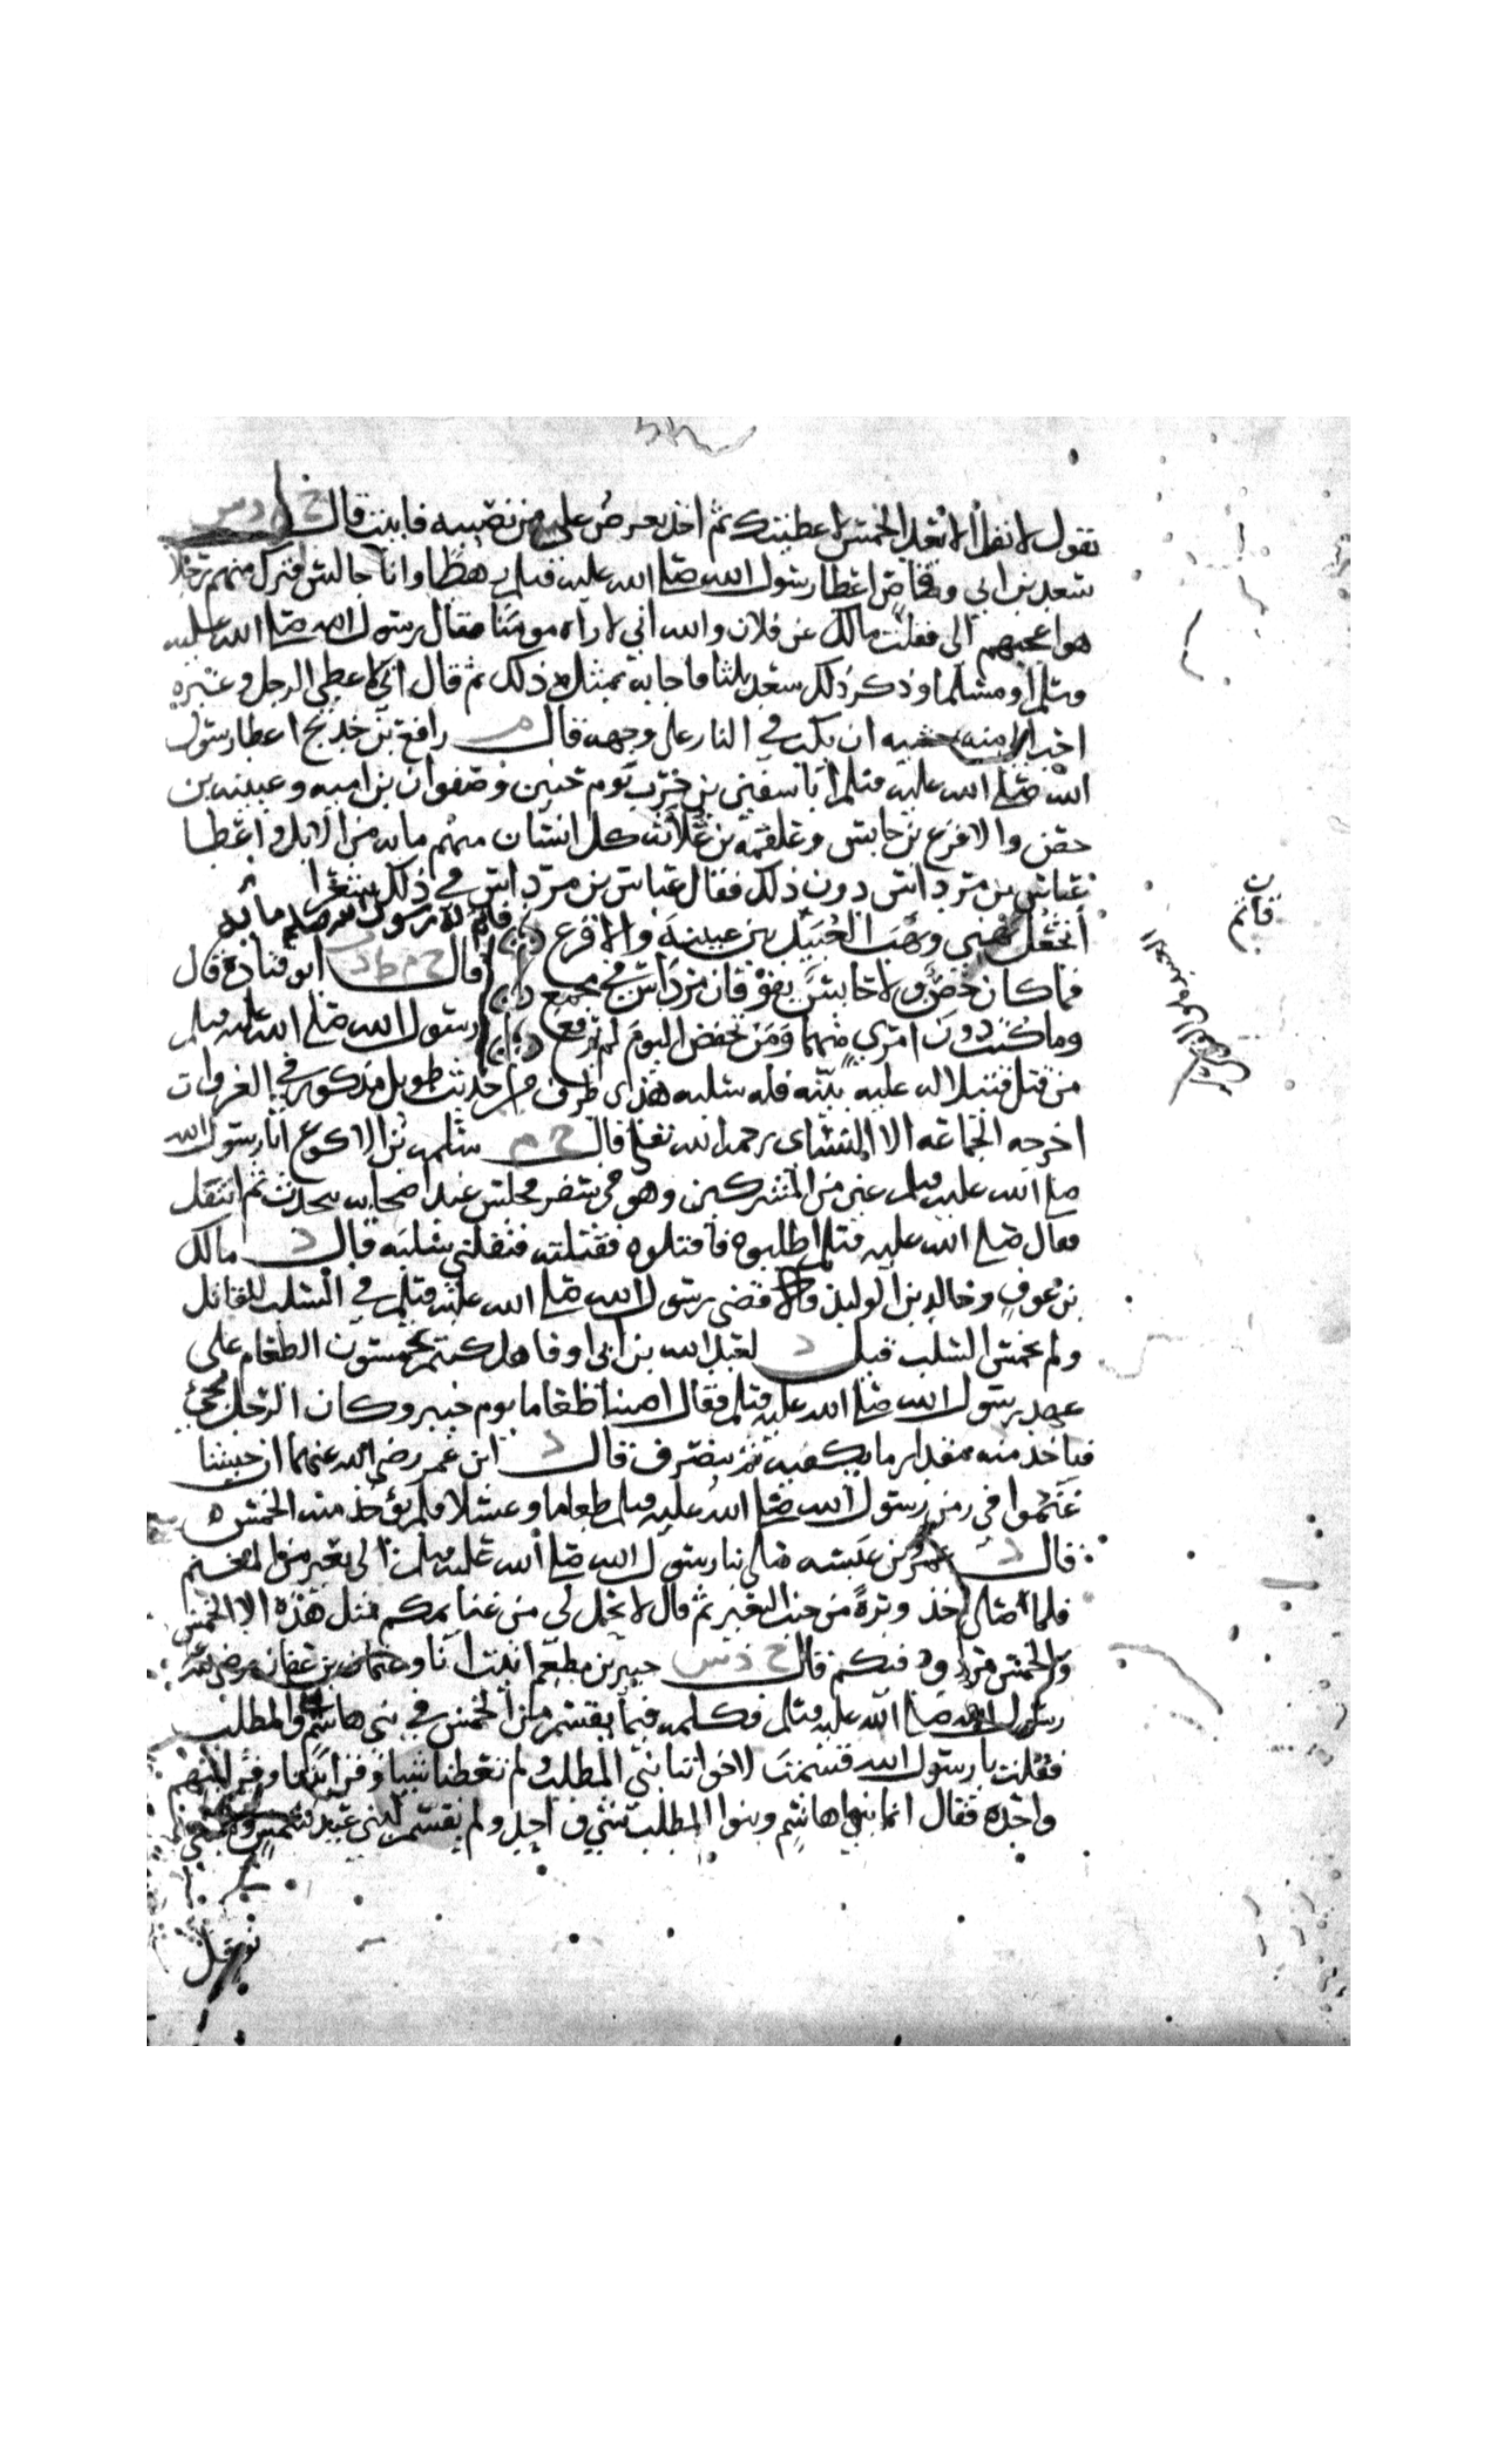 يقول لا نفل الا بعد الخمس لاعطيتك ثم اخذ يعرض علي من نصيبه فابيت قال خ م د س
سعد بن ابي وقاص اعطا رسول الله صلى الله عليه وسلم رهطا وانا جالس فترك منهم رجلا
هو اعجبهم الى فقلت مالك عن فلان والله اني لاراه مومنا فقال رسول الله صلى الله عليه
وسلم او مسلما وذكر ذلك سعد ثلثا واجابه بمثل ذلك ثم قال اني لاعطي الرجل وغيره
احب الي منه خشيه ان يكب في النار على وجهه قال م رافع بن خديج اعطا رسول
الله صلى الله عليه وسلم ابا سفين بن حرب يوم حنين وصفوان بن اميه وعيينه بن
حصن والاقرع بن حابس وعلقمه بن علاثه كل انسان منهم مايه من الابل واعطا
عباس بن مرداس دون ذلك فقال عباس بن مرداس في ذلك شعرا
أتجعل نهبي ونهب العبيد بين عيينة والاقرع فاتم له رسول الله صلعم مايه
فما كان حصن ولا حابس يفوقان مرداس في مجمع قال خ م ط د ابو قتادة قال
وما كنت دون امري منهما ومن تخفض اليوم لم يرفع رسول الله صلى الله عليه وسلم
من قتل قتيلا له عليه بينه فله سلبه هذا طرف من حديث طويل مذكور في الغزوات
اخرجه الجماعه الا النسائي رحمه الله تعلى قال خ م سلمه بن الاكوع اتا رسول الله
صلى الله عليه وسلم عين من المشركين وهو في سفر فجلس عند اصحابه يتحدث ثم انتقل
فقال صلى الله عليه وسلم اطلبوه فاقتلوه فقتلته فنفلني سلبه قال د مالك
بن عوف وخالد بن الوليد قالا قضى رسول الله صلى الله عليه وسلم في السلب للقاتل
ولم يخمس السلب قيل د لعبد الله بن ابي اوفا هل كنتم تخمسون الطعام على
عهد رسول الله صلى الله عليه وسلم فقال اصبنا طعاما يوم خيبر وكان الرجل يجيئ
فياخذ منه مقدار ما يكفيه ثم ينصرف قال د ابن عمر رضي الله عنهما ان جيشا
غنموا في زمن رسول الله صلى الله عليه وسلم طعاما وعسلا فلم يؤخذ منه الخمس ه
قال د عمرو بن عبسه صلى بنا رسول الله صلى الله عليه وسلم الى بعير من المغنم
فلما صلى اخذ وبرة من جنب البعير ثم قال لا يحل لي من غنايمكم مثل هذه الا الخمس
والخمس مردود فيكم قال خ د س جبير بن مطعم اتيت انا وعثمان بن عفان
رسول الله صلى الله عليه وسلم فكلمه فيما يقسم من الخمس في بني هاشم والمطلب
فقلت يا رسول الله قسمت لاخواننا بني المطلب ولم تعطنا شيا وقرابتنا وقرابتهم
واحده فقال انما بنوا هاشم وبنوا المطلب شيئ واحد ولم يقسم لبني عبد شمس
نوفل